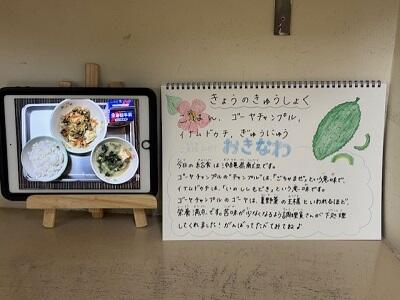 きょうのきゅうしょく
ごはん、ゴーヤチャンプル、
イナムドゥチ、ぎゅうにゅう
おきなわ
今日の給食は沖縄県献立です。
ゴーヤチャンプルの"チャンプル"は、"ごちゃまぜ"という意味で、
イナムドゥチは、"いのししもどき"という意味です。
ゴーヤチャンプルのゴーヤは、夏野菜の王様といわれるほど、
栄養満点です。苦味が少なくなるよう調理員さんが下処理
してくれました！がんばってたべてみてね♪